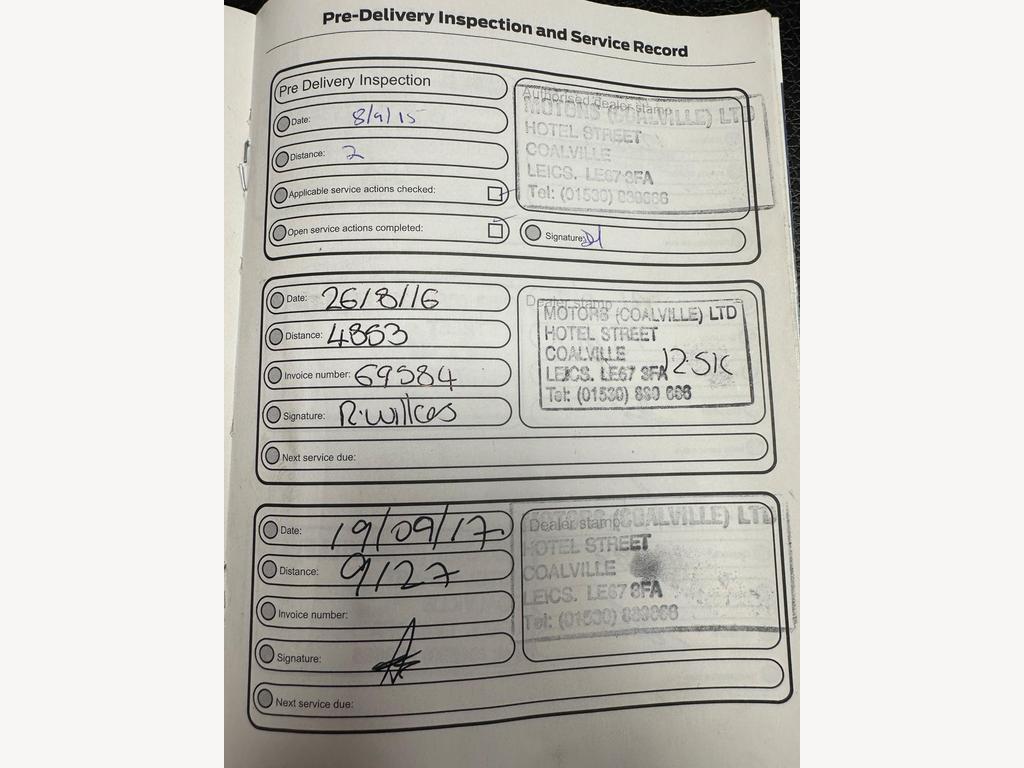 Pre-Delivery Inspection and Service Record
Pre Delivery Inspection
Date: 8/9/15
Distance: 2
Applicable service actions checked:
Open service actions completed:
Authorised dealer stamp
MOTORS (COALVILLE) LTD
HOTEL STREET
COALVILLE
LEICS. LE67 3FA
Tel: (01530)
Signature:
Date: 26/8/16
Distance: 4863
Invoice number: 69584
Signature: R.Willcos
Next service due:
Dealer stamp
MOTORS (COALVILLE) LTD
HOTEL STREET
COALVILLE
LEICS. LE67 3FA
12.5K
Tel: (01530)
Date: 19/09/17
Distance: 9127
Invoice number:
Signature:
Next service due:
Dealer stamp
MOTORS (COALVILLE) LTD
HOTEL STREET
COALVILLE
LEICS. LE67 3FA
Tel: (01530)